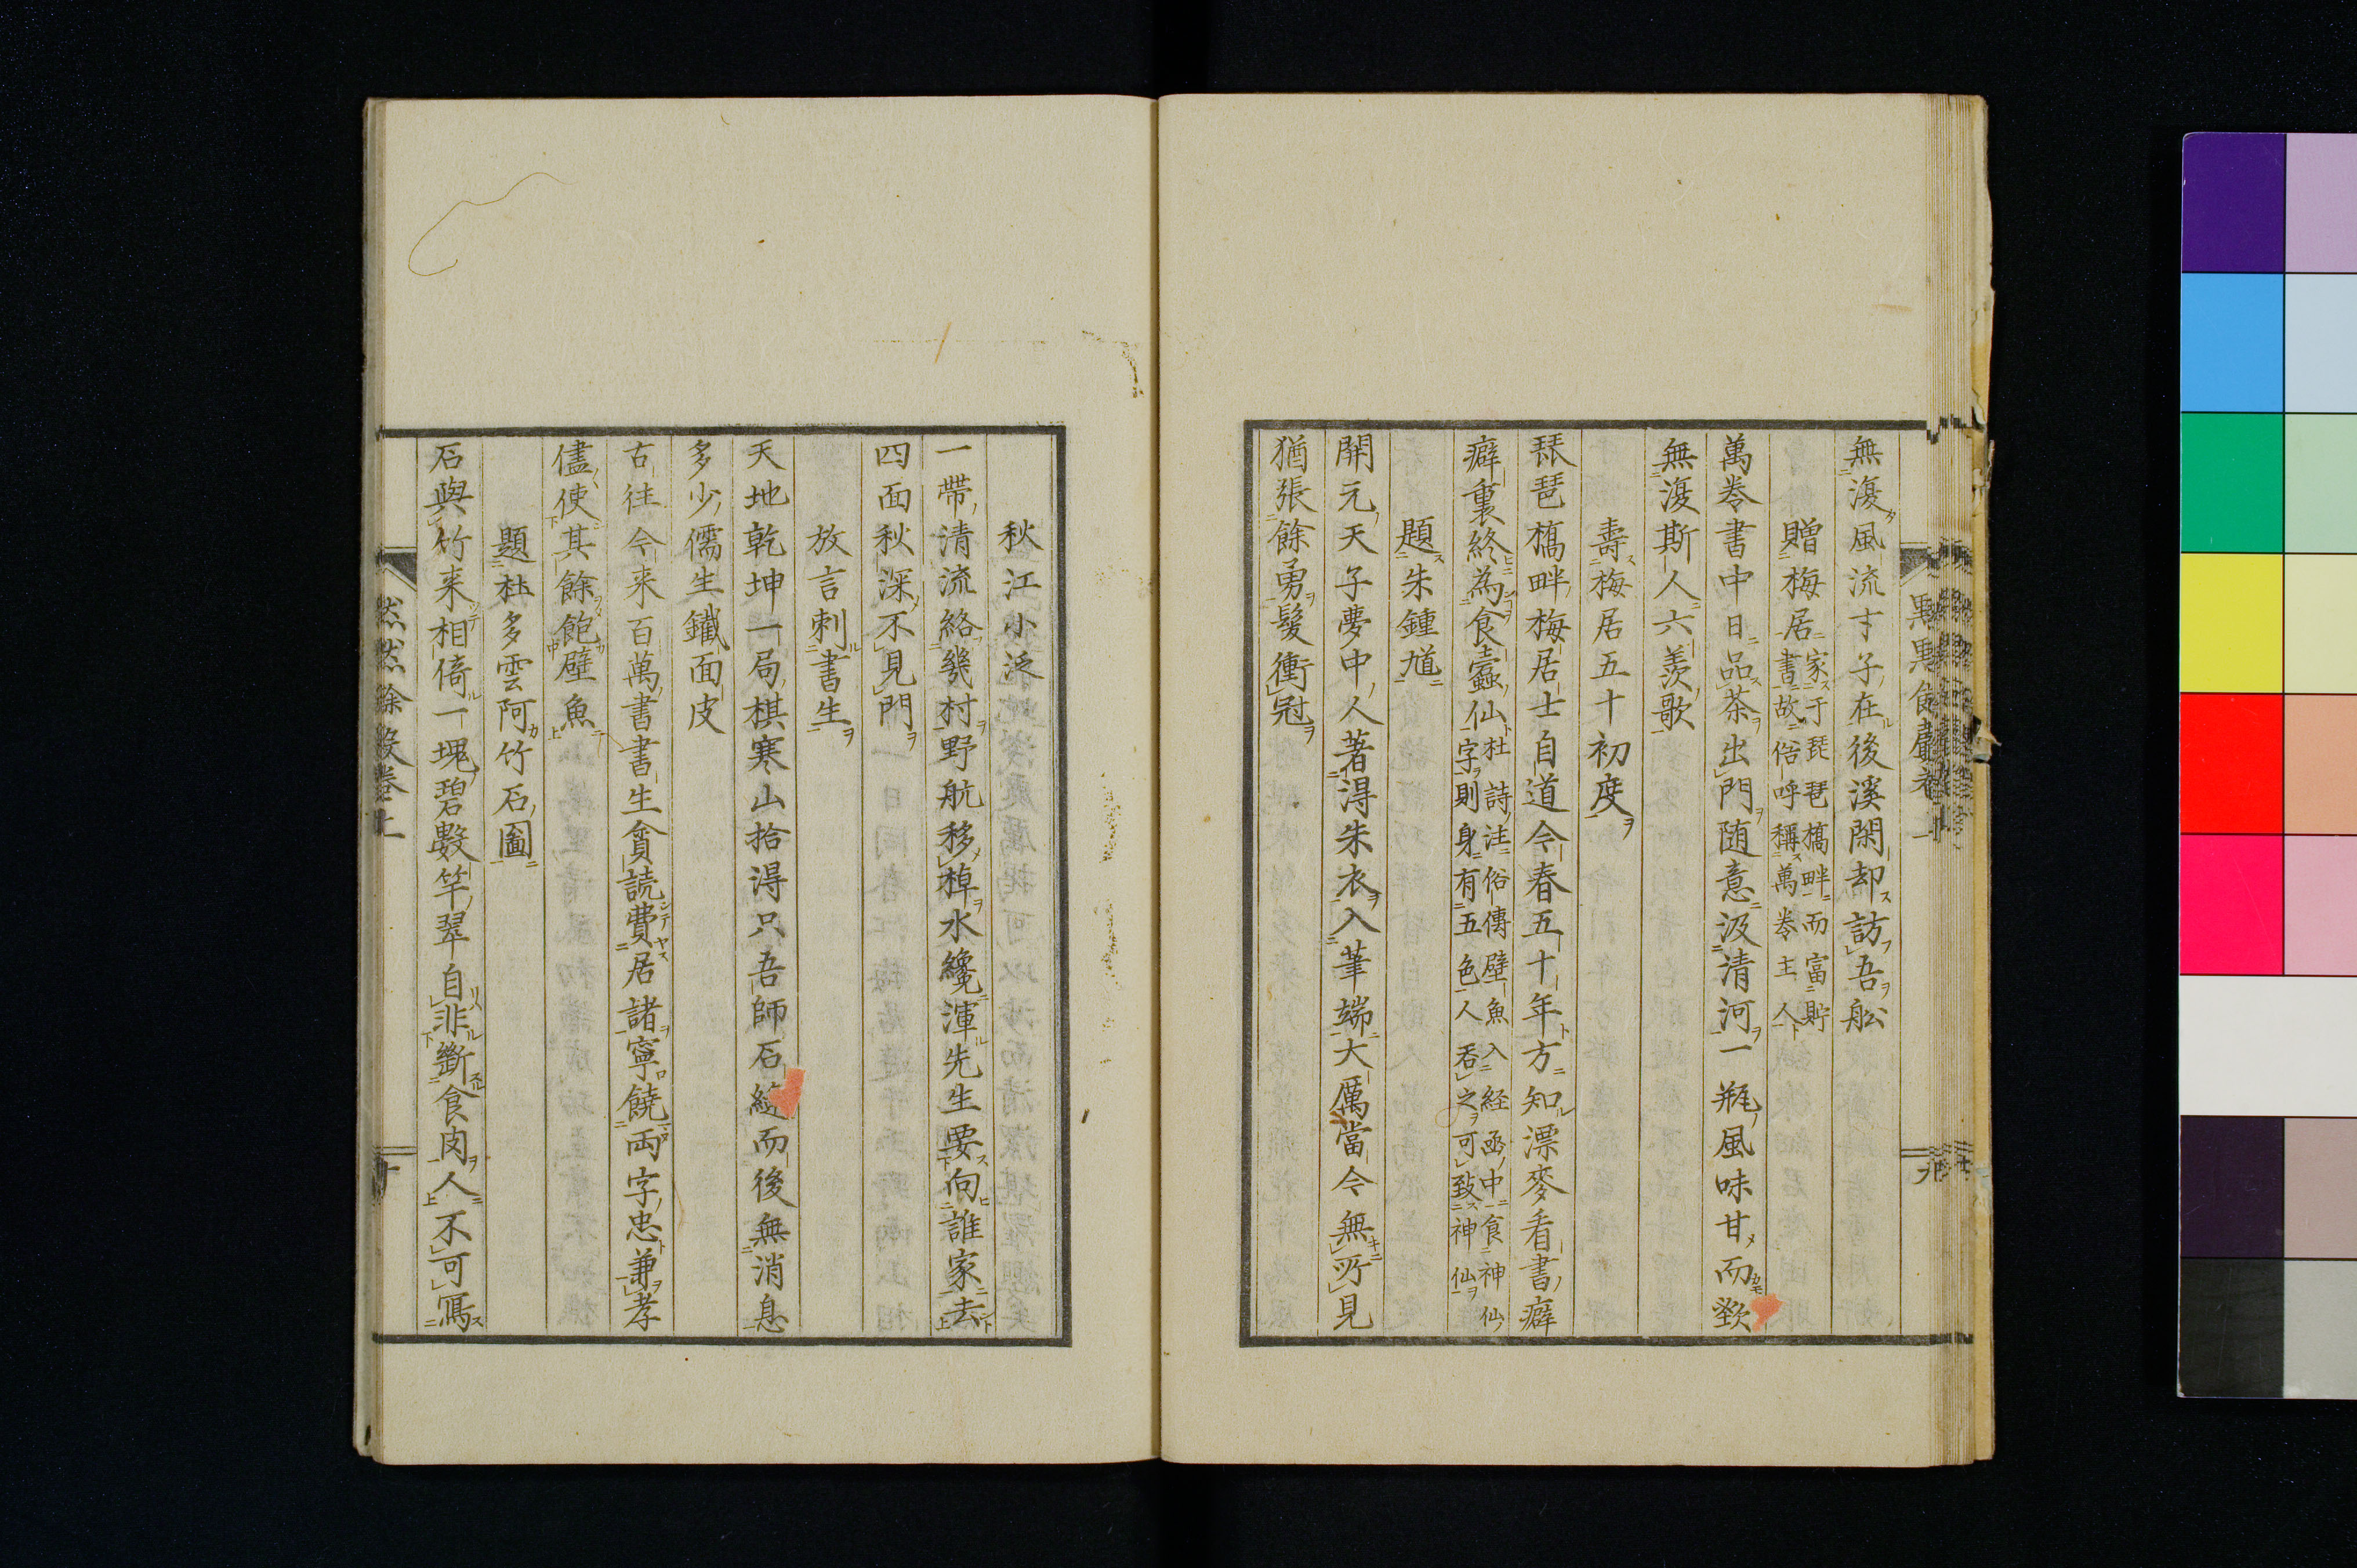 無復風流才子在後溪閑却訪吾舩
贈梅居家于琵琶橋畔而富貯書故俗呼稱萬卷主人
萬卷書中日品茶出門随意汲清河一瓶風味甘而
無復斯人六羨歌
壽梅居五十初度
琵琶橋畔梅居士自道今春五十年方知漂麥看書癖
癖裏終為食蠹仙杜詩注俗傳壁魚入経函中食神仙字則身有五色人吞之可致神仙
題朱鍾馗
開元天子夢中人著得朱衣入筆端大厲當今無所見
猶張餘勇髮衝冠
秋江小泛
一帶清流絡幾村野航移棹水纔渾先生要向誰家去
四面秋深不見門
放言刺書生
天地乾坤一局棋寒山拾得只吾師石縫而後無消息
多少儒生鐵面皮
古往今来百萬書書生貪読費居諸寧饒両字忠兼孝
儘使其餘飽壁魚
題杜多雲阿竹石圖
石與竹来相倚一塊碧數竿翠自非斷食肉人不可寫